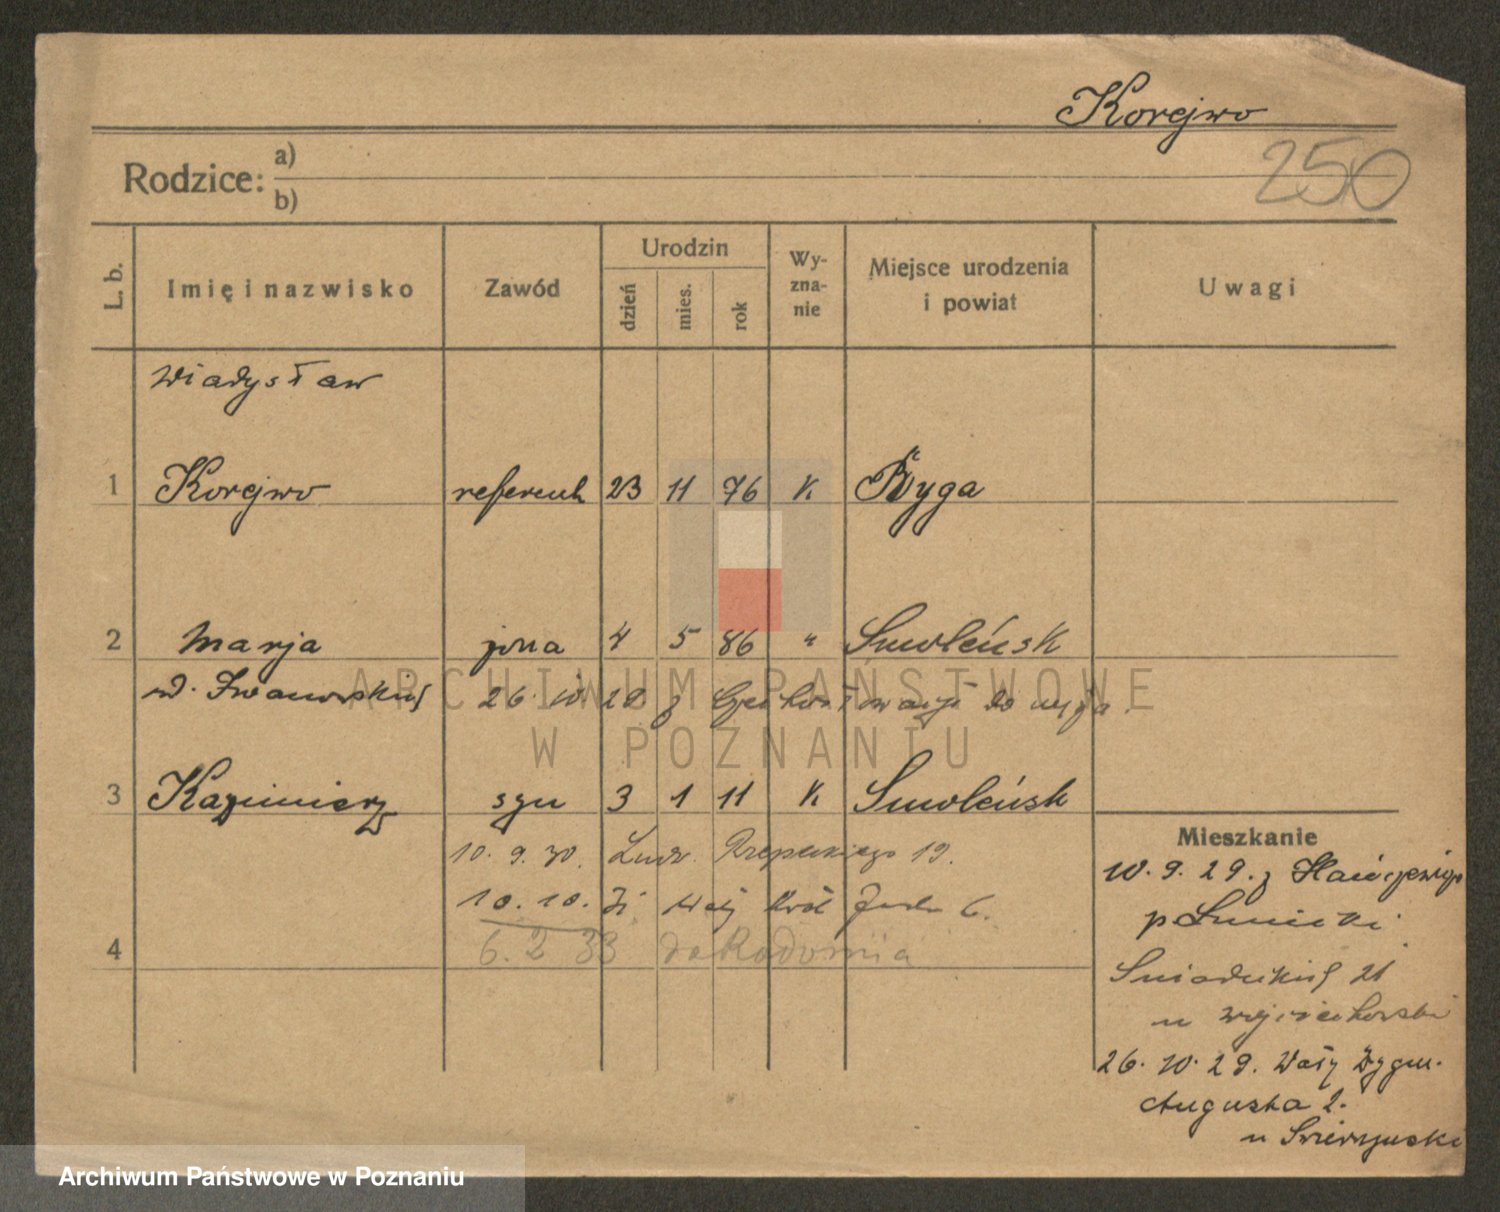 Korejwo
250
Rodzice: a)
b)
L. b.
Imię i nazwisko
Zawód
Urodzin
dzień
mies.
rok
Wy-
zna-
nie
Miejsce urodzenia
i powiat
Uwagi
Władysław
1 Korejwo referent 23 11 76 K Ryga
2 Marja żona 4 5 86 " Smoleńsk
26 10 29 z do męża
3 Kazimierz syn 3 1 11 K Smoleńsk
10. 9. 30. Ludw. Rzepeckiego 19.
10. 10. Wały Król Jadw 6.
4 6. 2 33 do Radomia
Mieszkanie
10. 9. 29. z
p.
21
u Wojciechowski
26. 10. 29. Wały Zygm.
Augusta 2.
u
ARCHIWUM PAŃSTWOWE
W POZNANIU
Archiwum Państwowe w Poznaniu